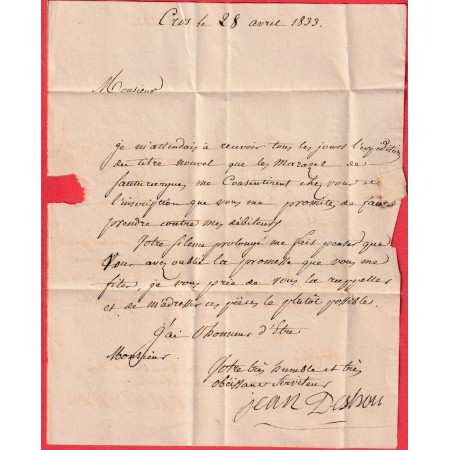 Cris le 28 avril 1833.
Monsieur
je m'attendais à recevoir tous les jours l'expédition
du titre nouvel que les Mazazel de
me Consentirent chez vous et
l'inscription que vous me promites de faire
prendre contre mes débiteurs
Votre silence prolongé me fait penser que
Vous avez oublié la promesse que vous me
fites, je vous prie de vous la rappeller
et de m'adresser ces pièces le plutôt possible.
J'ai l'honneur d'Etre
Monsieur
Votre très humble et très
obéissant Serviteur
jean